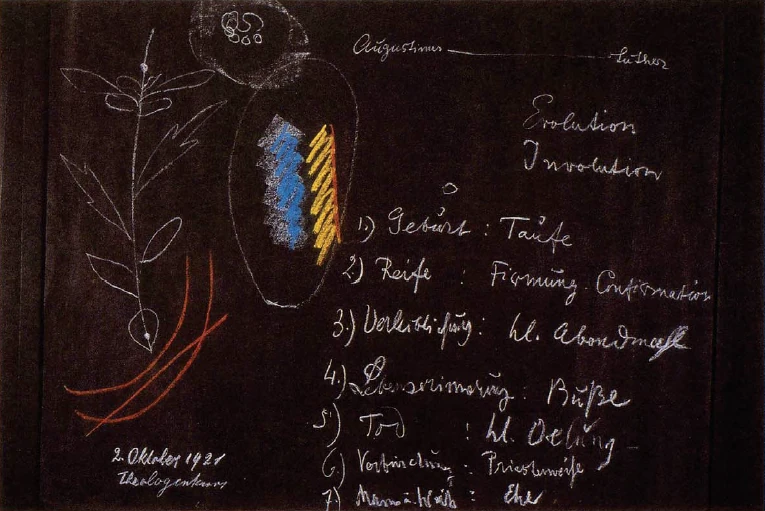 Augustinus — Luther
Evolution
Involution
1.) Geburt : Taufe
2) Reife : Firmung. Confirmation
3.) Verleiblichung : hl. Abendmahl
4.) : Buße
5) Tod : hl. Oelung
6.) : Priesterweihe
7) : Ehe
2. Oktober 1921
Theologenkurs